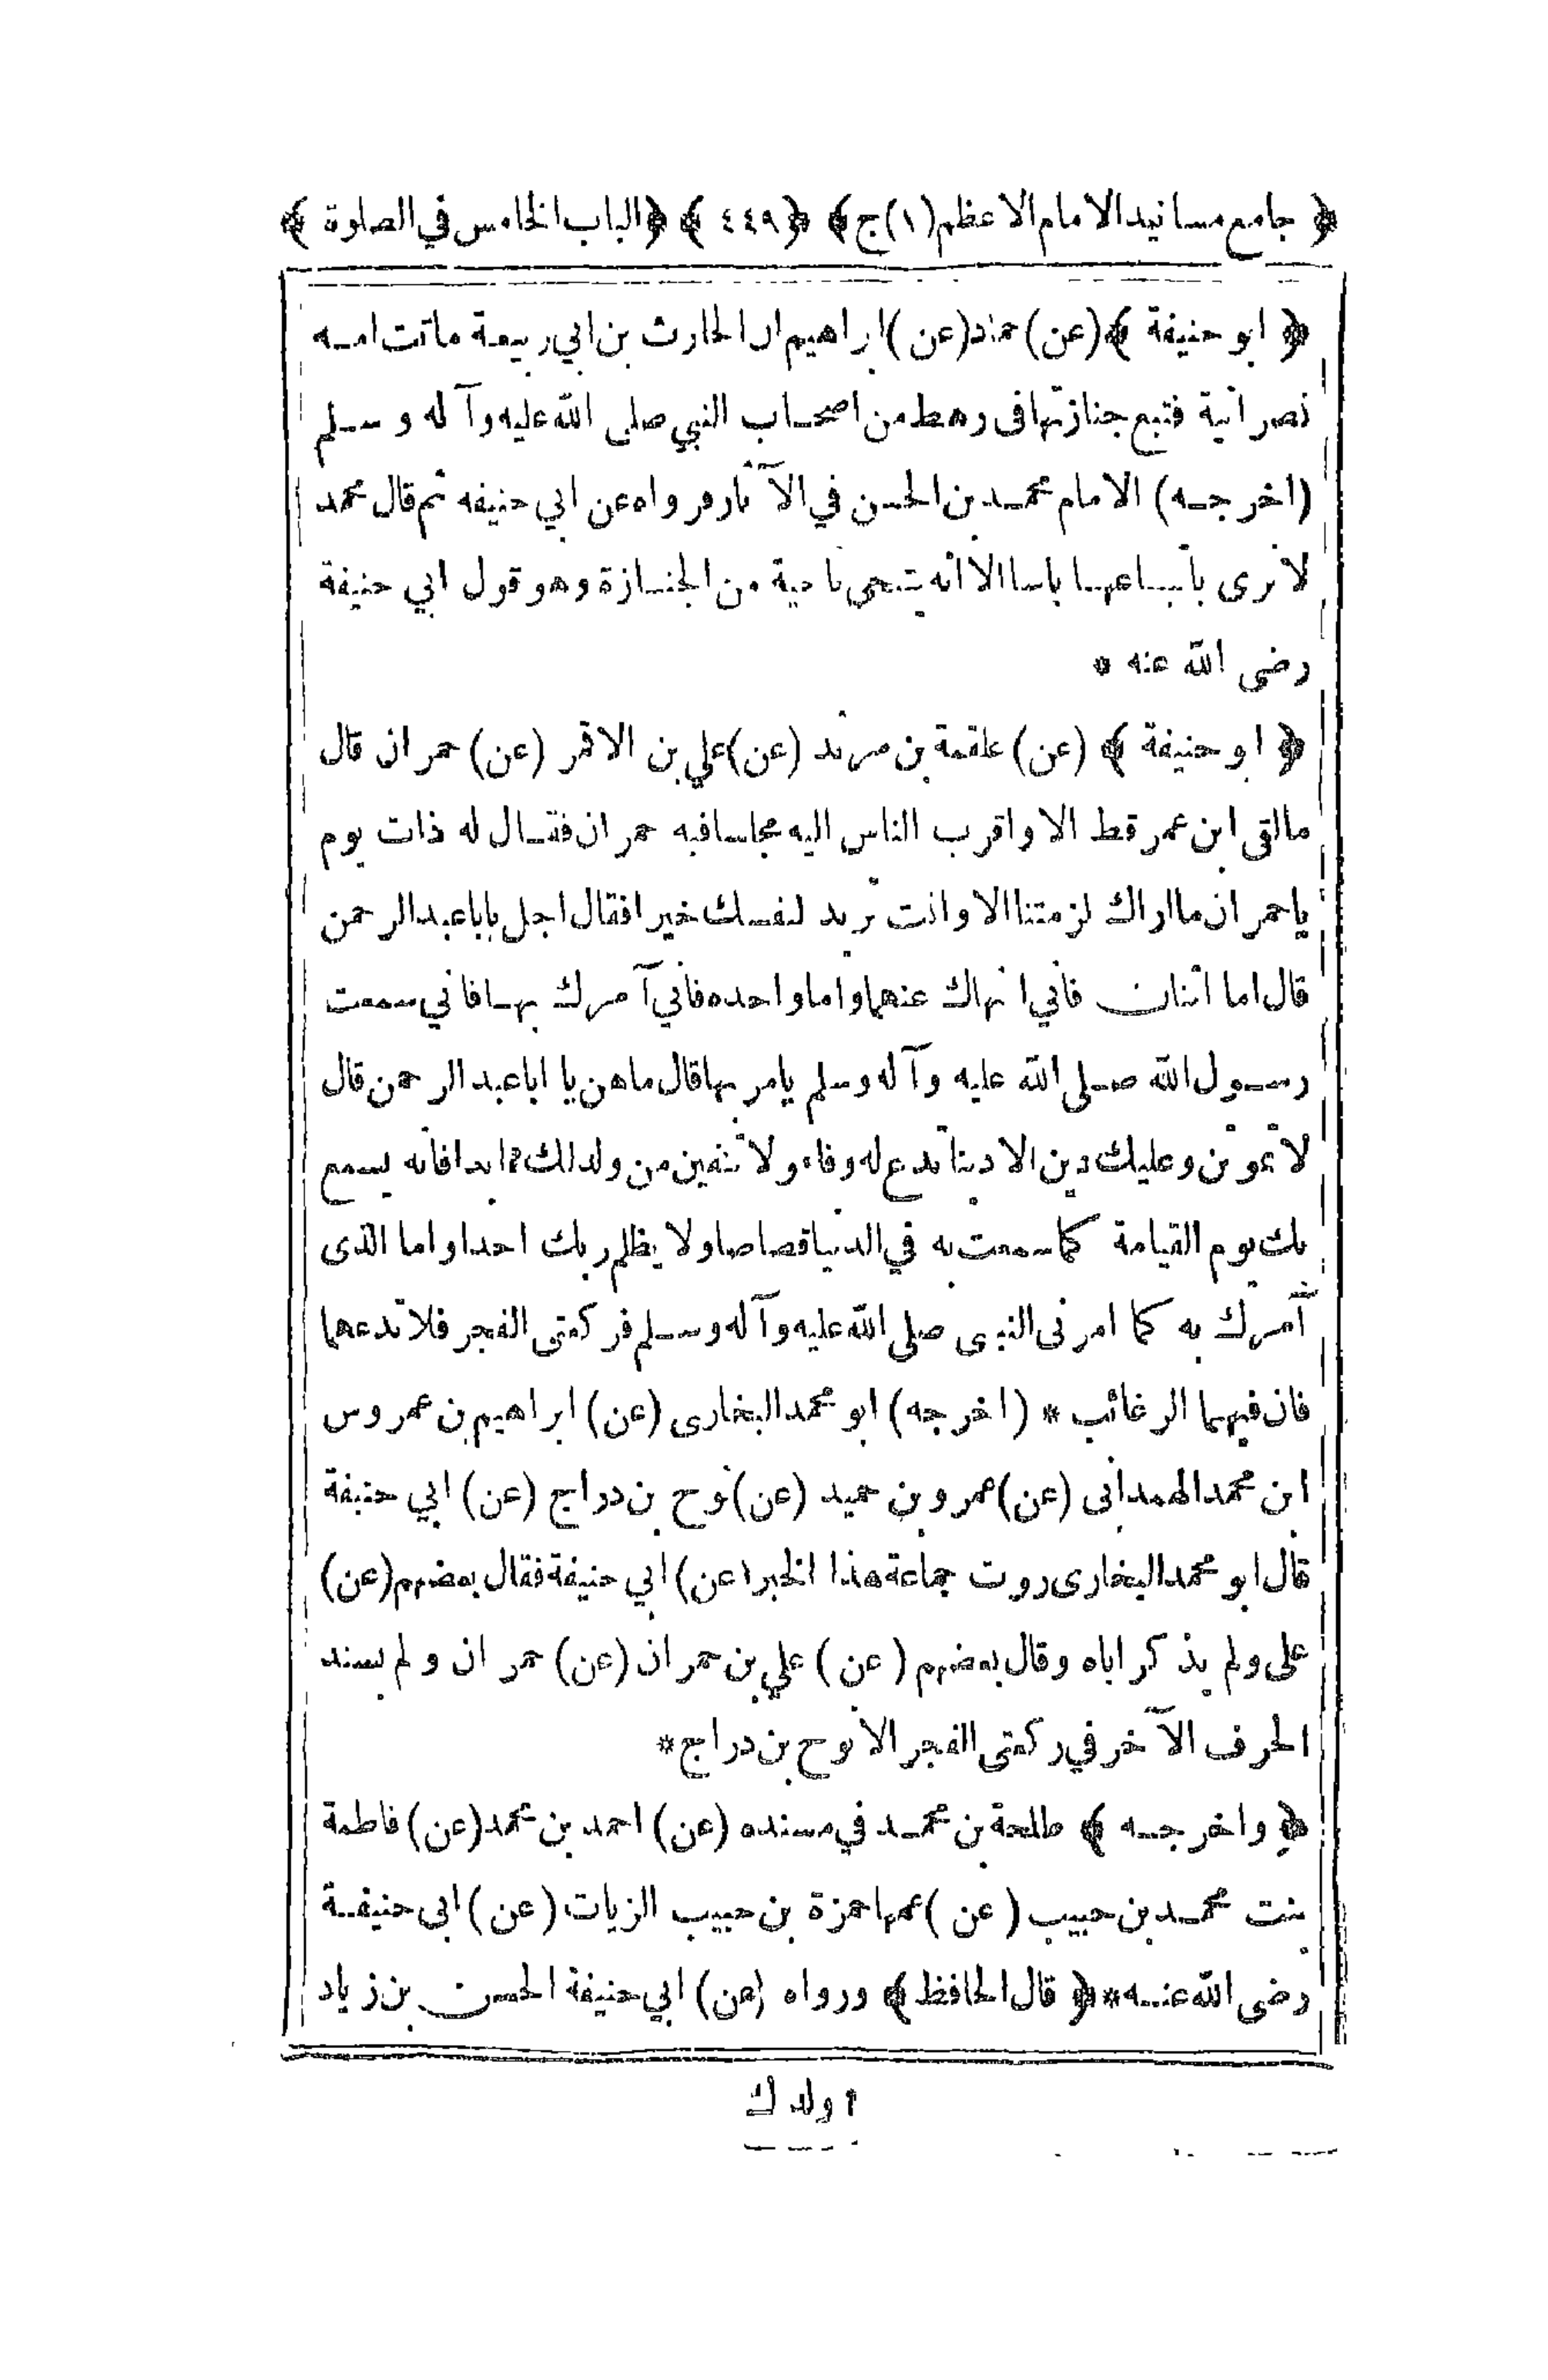 ﴿ جامع مسانيد الامام الاعظم (١) ج ﴾ ﴿ ٤٤٩ ﴾ ﴿ الباب الخامس في الصلوة ﴾
﴿ ابو حنيفة ﴾ (عن) حماد (عن) ابراهيم ان الحارث بن ابي ربيعة ماتت امه
نصرانية فتبع جنازتها فى رهط من اصحاب النبي صلى الله عليه وآله وسلم
(اخرجه) الامام محمد بن الحسن في الآثار ورواه عن ابي حنيفه ثم قال محمد
لا نرى باتباعها باسا الا انه يتنحى ناحية من الجنازة وهو قول ابي حنيفة
رضى الله عنه *
﴿ ابو حنيفة ﴾ (عن) علقمة بن مرثد (عن) علي بن الاقمر (عن) حمران قال
مالقى ابن عمر قط الا واقرب الناس اليه مجلسا فيه حمران فقال له ذات يوم
يا حمران ما اراك لزمتنا الا وانت تريد لنفسك خيرا فقال اجل يابا عبد الرحمن
قال اما اثنان فاني انهاك عنهما واما واحده فاني آمرك بها فاني سمعت
رسول الله صلى الله عليه وآله وسلم يامر بها قال ماهن يا ابا عبد الرحمن قال
لا تموتن وعليك دين الا دينا تدع له وفاء ولا تنفين من ولد لك ١ ابدا فانه يسمع
بك يوم القيامة كما سمعت به في الدنيا قصاصا ولا يظلم ربك احدا واما الذى
آمرك به كما امرنى النبى صلى الله عليه وآله وسلم فركعتى الفجر فلا تدعهما
فان فيهما الرغائب * (اخرجه) ابو محمد البخارى (عن) ابراهيم بن عمروس
ابن محمد الهمدانى (عن) عمرو بن حميد (عن) نوح بن دراج (عن) ابي حنيفة
قال ابو محمد البخارى روت جماعة هذا الخبر (عن) ابي حنيفة فقال بعضهم (عن)
على ولم يذكر اباه وقال بعضهم (عن) علي بن حمران (عن) حمران ولم يسند
الحرف الآخر في ركعتى الفجر الا نوح بن دراج *
﴿ واخرجه ﴾ طلحة بن محمد في مسنده (عن) احمد بن محمد (عن) فاطمة
بنت محمد بن حبيب (عن) عمها حمزة بن حبيب الزيات (عن) ابى حنيفة
رضى الله عنه * ﴿ قال الحافظ ﴾ ورواه (عن) ابي حنيفة الحسن بن زياد
١ ولدك